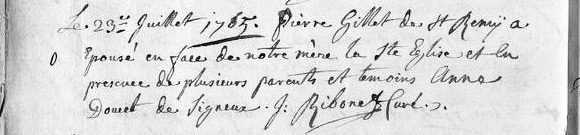 Le 23e Juillet 1785. Pierre Gillet de St Remy a
épousé en face de notre mère la Ste Eglise et en
presence de plusieurs parents et temoins Anne
Doucet de Signeux. J: Ribonet Curé.